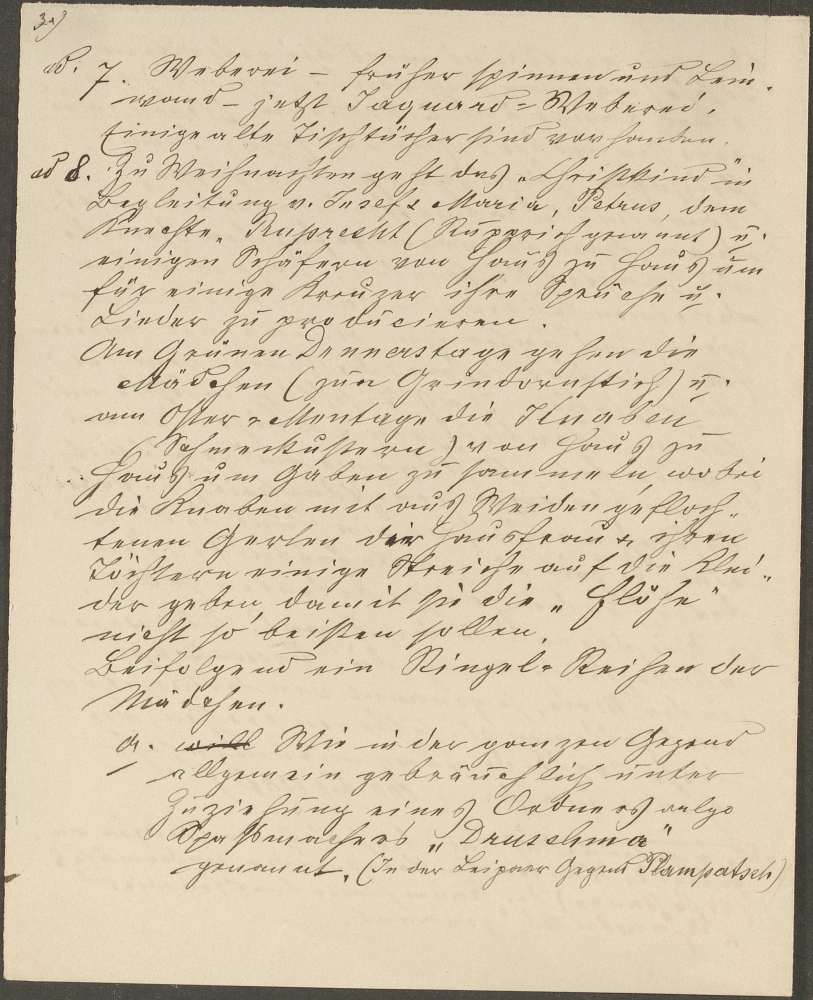 3.)
ad. 7. Weberei – früher spinnen und Lein-
wand – jetzt Jaquard-Weberei.
Einige alte Tischtücher sind vorhanden.
ad 8. Zu Weihnachten geht das „Christkind" in
Begleitung v. Josef & Maria, Petrus, dem
Knechte „Ruprecht (Rupprich genannt) u.
einigen Schäfern von Haus zu Haus um
für einige Kreuzer ihre Sprüche u.
Lieder zu producieren.
Am Grünen Donnerstage gehen die
Mädchen (zum Grindornstich) u.
am Oster-Montage die Knaben
(Schmeckustern) von Haus zu
Haus um Gaben zu sammeln, wobei
die Knaben mit aus Weiden gefloch-
tenen Gerten der Hausfrau & ihren
Töchtern einige Streiche auf die Klei-
der geben, damit sie die „Flöhe"
nicht so beißen sollen.
Beifolgend ein Ringel-Reihen der
Mädchen.
a. will Wie in der ganzen Gegend
allgemein gebräuchlich unter
Zuziehung eines Ordners vulgo
Spaßmachers „Druschma"
genannt. (In der Leipaer Gegend Plampatsch)